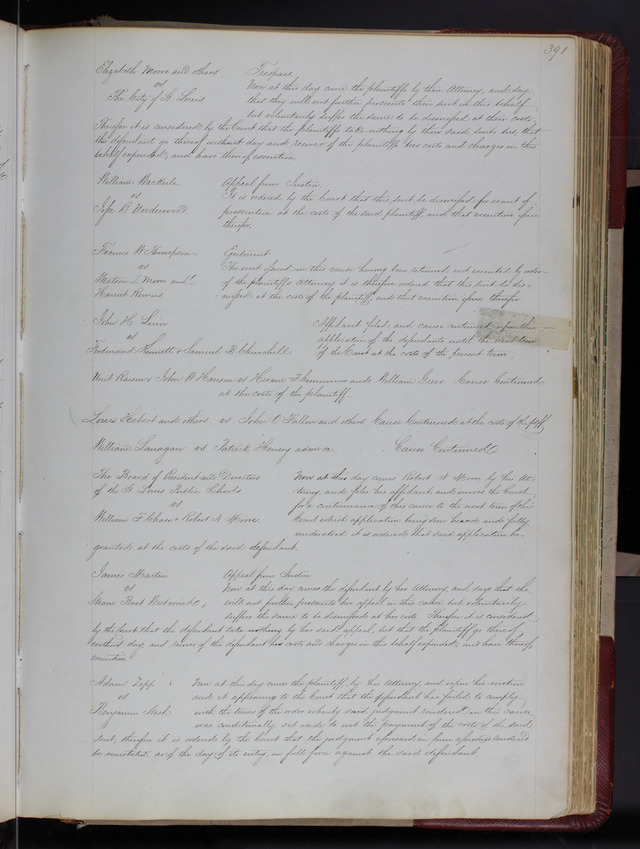 391
Elizabeth Moore and others Trespass
vs Now at this day come the plaintiffs by their Attorney, and say
The City of St Louis that they will not further prosecute their suit in this behalf
but voluntarily suffer the same to be dismissed at their costs,
Therefore it is considered by the Court that the plaintiffs take nothing by their said suit, but that
the defendant go thereof without day and recover of the plaintiffs her costs and charges in this
behalf expended, and have thereof execution.
William Appeal from Justice
vs It is ordered by the Court that this suit be dismissed for want of
B Underwood prosecution at the costs of the said plaintiff, and that execution issue
therefor.
Francis W Thompson Ejectment
vs The writ issued in this cause having been returned not executed by order
L Moore and of the plaintiffs Attorney it is therefore ordered that this suit be dis-
Harriet missed at the costs of the plaintiff, and that execution issue therefor
John H. Affidavit filed and cause continued upon the
vs application of the defendants until the next term
Ferdinand Kennett & Samuel B Churchill of the Court at the costs of the present term
John W vs Hiram and William Greer Cause Continued
at the costs of the plaintiff
Louis Hebert and others vs John O Fallon and others Cause Continued at the costs of the plff
William Lanagan vs Patrick admr Cause Continued
The Board of President and Directors Now at this day comes Robert N Moore by his At-
of the St Louis Public Schools torney and files his affidavit and moves the Court
vs for a continuance of this cause to the next term of this
William F Chase & Robert N Moore Court which application being seen heard and fully
understood it is ordered that said application be
granted at the costs of the said defendant.
James Martin Appeal from Justice
vs Now at this day comes the defendant by her Attorney, and says that she
Boat will not further prosecute her appeal in this cause but voluntarily
suffers the same to be dismissed at her costs Therefore it is considered
by the Court that the defendant take nothing by her said appeal, but that the plaintiff go thereof
without day and recover of the defendant his costs and charges in this behalf expended, and have thereof
execution
Adam Now at this day comes the plaintiff, by his Attorney and upon his motion
vs and it appearing to the Court that the defendant has failed to comply
Benjamin with the terms of the order whereby said judgment rendered in this cause
was conditionally set aside to wit the payment of the costs of the said
suit, therefore it is ordered by the Court that the judgment aforesaid in form aforesaid rendered
be reinstated, as of the day of its entry, in full force against the said defendant.